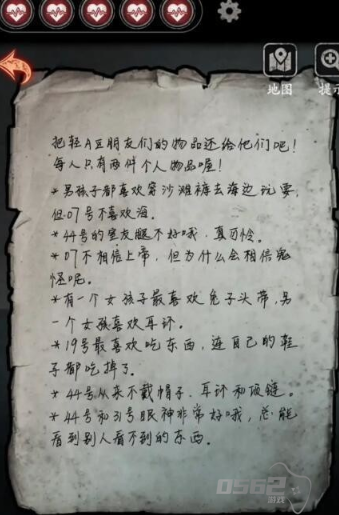 地图
提示
把轻A区朋友们的物品还给他们吧！
每人只有两件个人物品喔！
*男孩子都喜欢穿沙滩裤去海边玩耍，
但07号不喜欢海。
*44号的室友腿不好哦，真可怜。
*07不相信上帝，但为什么会相信鬼
怪呢。
*有一个女孩子最喜欢兔子头带，另
一个女孩喜欢耳环。
*19号最喜欢吃东西，连自己的鞋
子都吃掉了。
*44号从来不戴帽子、耳环和项链。
*44号和31号眼神非常好哦，总能
看到别人看不到的东西。
0562
游戏